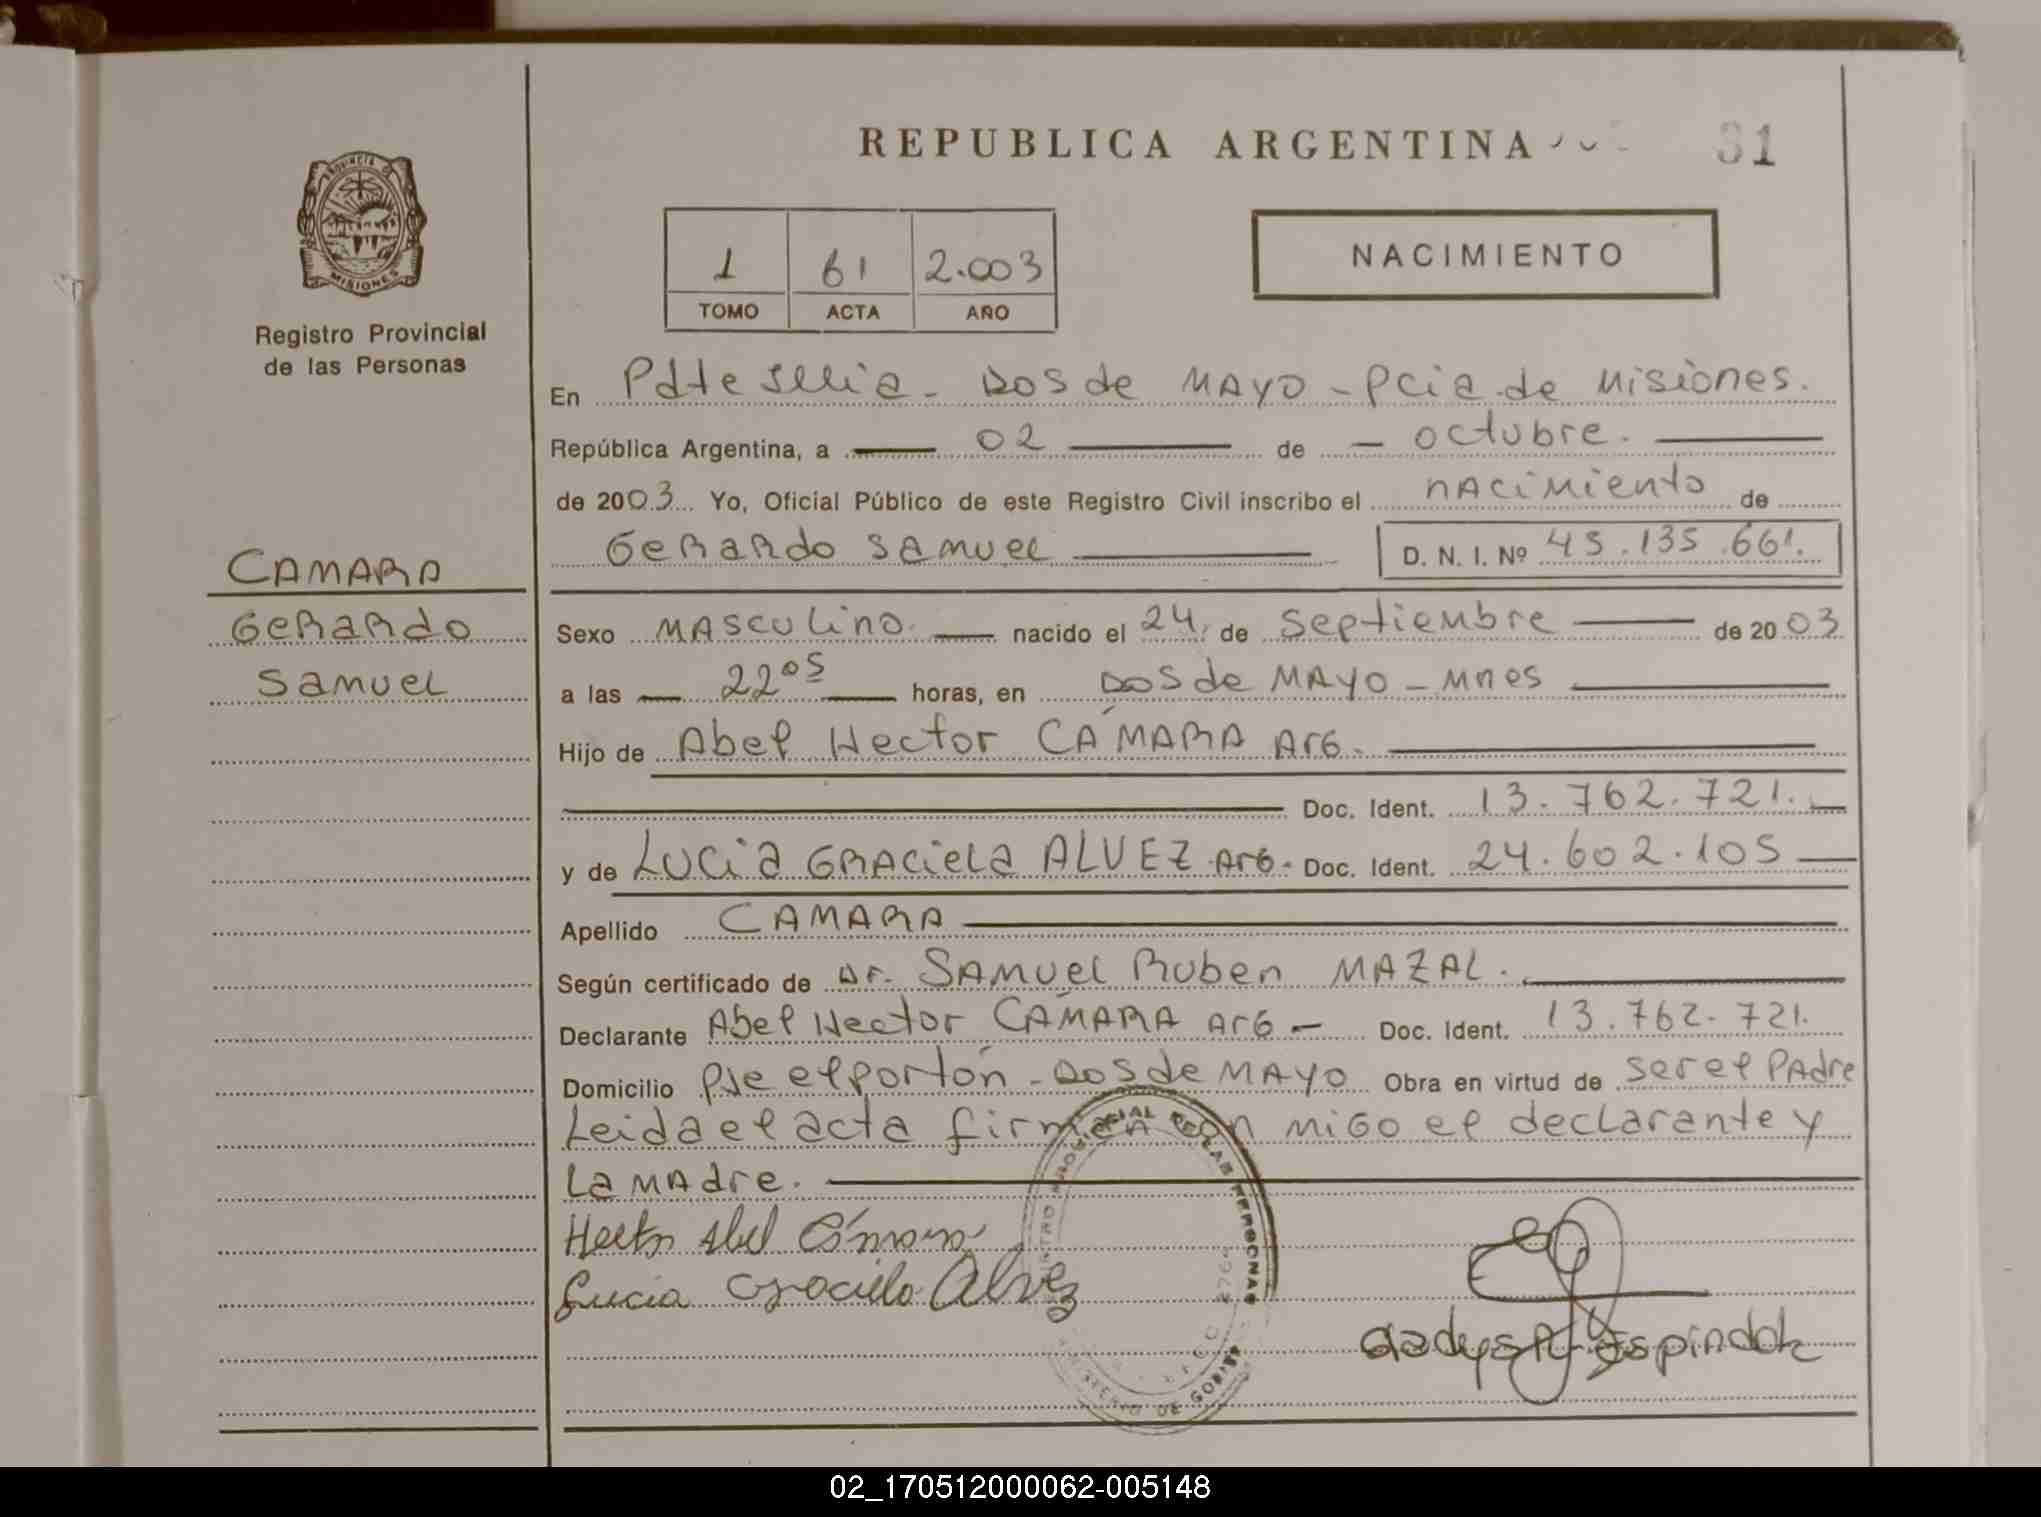 REPUBLICA ARGENTINA
31
PROVINCIA DE
MISIONES
Registro Provincial
de las Personas
1 61 2.003
TOMO ACTA AÑO
NACIMIENTO
En Pdte Illia - DOS de MAYO - Pcia de Misiones.
República Argentina, a 02 de octubre.
de 2003 Yo, Oficial Público de este Registro Civil inscribo el nacimiento de
Gerardo Samuel D. N. I. Nº 45.135.661.
CAMARA
Gerardo
Samuel
Sexo Masculino. nacido el 24 de Septiembre de 2003
a las 22 05 horas, en DOS de MAYO - Mnes
Hijo de Abel Hector CÁMARA Arg.
Doc. Ident. 13.762.721.
y de Lucia Graciela ALVEZ Arg. Doc. Ident. 24.602.105
Apellido CAMARA
Según certificado de Dr. Samuel Ruben MAZAL.
Declarante Abel Hector CÁMARA Arg - Doc. Ident. 13.762.721.
Domicilio Pje el portón - DOS de MAYO Obra en virtud de ser el Padre
Leida el acta firma con migo el declarante y
la madre.
Hector Abel Cámara
Lucia Graciela Alvez
Gladys Espindola
REGISTRO PROVINCIAL DE LAS PERSONAS
MINISTERIO DE GOBIER
02_170512000062-005148